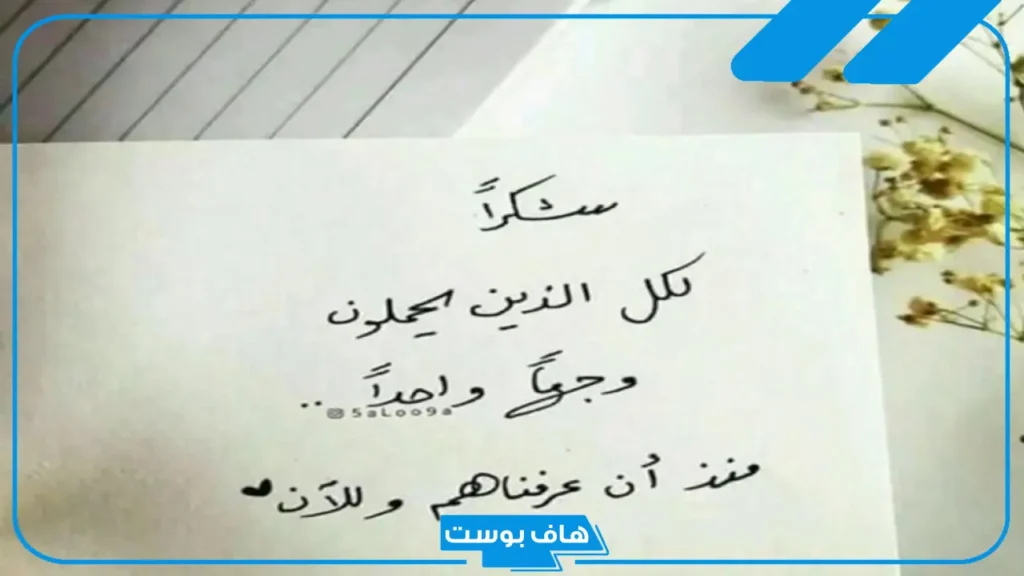 شكراً
لكل الذين يحملون
وجهاً واحداً ..
@5aLoo9a
منذ أن عرفناهم وللآن ♥
هاف بوست